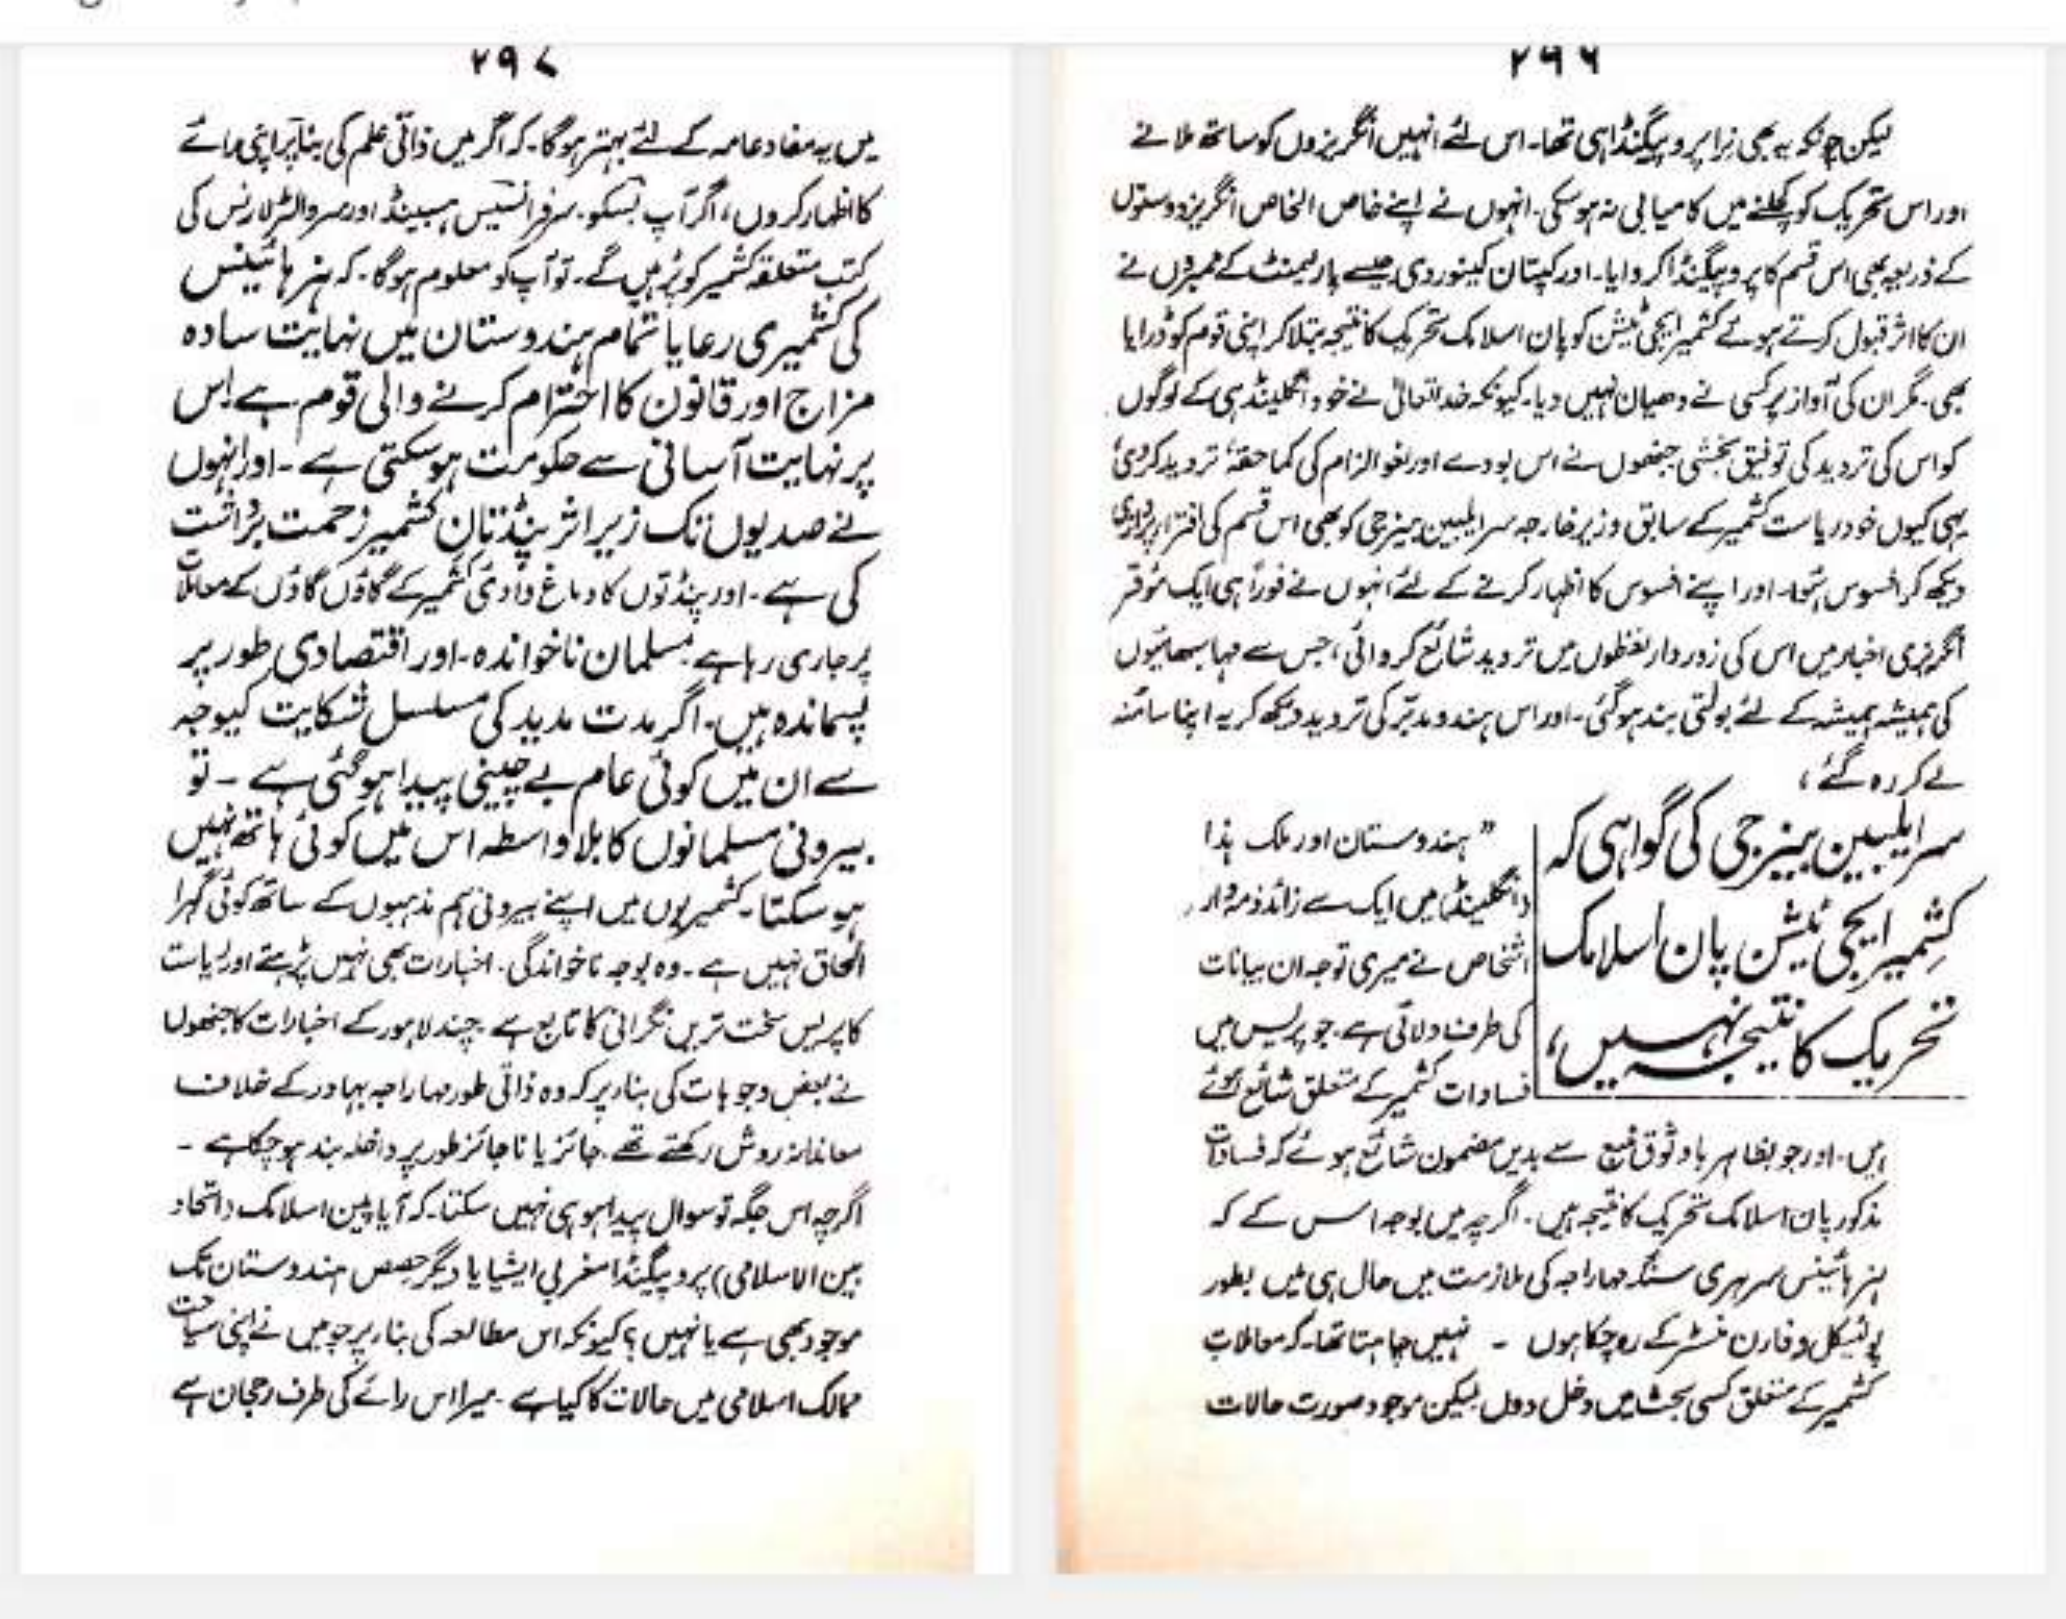 ۲۹۶
لیکن چونکہ یہ بھی نرا پروپیگنڈا ہی تھا۔ اس لئے انہیں انگریزوں کو ساتھ ملانے
اور اس تحریک کو کچلنے میں کامیابی نہ ہوسکی۔ انہوں نے اپنے خاص الخاص انگریز دوستوں
کے ذریعہ بھی اس قسم کا پروپیگنڈا کروایا۔ اور کپتان کینوردی جیسے پارلیمنٹ کے ممبروں نے
ان کا اثر قبول کرتے ہوئے کشمیر ایجی ٹیشن کو پان اسلامک تحریک کا نتیجہ بتلا کر اپنی قوم کو ڈرایا
بھی۔ مگر ان کی آواز پر کسی نے دھیان نہیں دیا۔ کیونکہ خدا تعالیٰ نے خود انگلینڈ ہی کے لوگوں
کو اس کی تردید کی توفیق بخشی جنھوں نے اس بودے اور لغو الزام کی کما حقہٗ تردید کر دی
یہی کیوں خود ریاست کشمیر کے سابق وزیر خارجہ سر ایلبین بینرجی کو بھی اس قسم کی افترا پردازی
دیکھ کر افسوس ہوا۔ اور اپنے افسوس کا اظہار کرنے کے لئے انہوں نے فوراً ہی ایک موقر
انگریزی اخبار میں اس کی زوردار لفظوں میں تردید شائع کروائی، جس سے مہا سبھائیوں
کی ہمیشہ ہمیشہ کے لئے بولتی بند ہو گئی۔ اور اس ہندو مدبّر کی تردید دیکھ کر یہ اپنا سا منہ
لے کر رہ گئے ،
سر ایلبین بینرجی کی گواہی کہ
کشمیر ایجی ٹیشن پان اسلامک
تحریک کا نتیجہ نہیں،
" ہندوستان اور ملک ہذا
(انگلینڈ) میں ایک سے زائد ذمہ دار
اشخاص نے میری توجہ ان بیانات
کی طرف دلائی ہے۔ جو پریس میں
فسادات کشمیر کے متعلق شائع ہوئے
ہیں۔ اور جو بظاہر باوثوق منبع سے بدیں مضمون شائع ہوئے کہ فسادات
مذکور پان اسلامک تحریک کا نتیجہ ہیں۔ اگرچہ میں بوجہ اس کے کہ
ہز ہائینس سر ہری سنگھ مہاراجہ کی ملازمت میں حال ہی میں بطور
پولٹیکل و فارن منسٹر کے رہ چکا ہوں ۔ نہیں چاہتا تھا۔ کہ معاملات
کشمیر کے متعلق کسی بحث میں دخل دوں لیکن موجودہ صورت حالات
۲۹۷
میں یہ مفاد عامہ کے لئے بہتر ہوگا۔ کہ اگر میں ذاتی علم کی بنا پر اپنی رائے
کا اظہار کروں، اگر آپ بسکو۔ سر فرانسیس ہسبینڈ اور سر والٹر لارنس کی
کتب متعلقہ کشمیر کو پڑہیں گے۔ تو آپ کو معلوم ہوگا۔ کہ ہز ہائینس
کی کشمیری رعایا تمام ہندوستان میں نہایت سادہ
مزاج اور قانون کا احترام کرنے والی قوم ہے اس
پر نہایت آسانی سے حکومت ہو سکتی ہے۔ اور انہوں
نے صدیوں تک زیر اثر پنڈتان کشمیر زحمت برداشت
کی ہے۔ اور پنڈتوں کا دماغ وادیٔ کشمیر کے گاؤں گاؤں کے معاملات
پر حاوی رہا ہے۔ مسلمان ناخواندہ۔ اور اقتصادی طور پر
پسماندہ ہیں۔ اگر مدت مدید کی مسلسل شکایت کیوجہ
سے ان میں کوئی عام بے چینی پیدا ہو گئی ہے ۔ تو
بیرونی مسلمانوں کا بلا واسطہ اس میں کوئی ہاتھ نہیں
ہو سکتا۔ کشمیریوں میں اپنے بیرونی ہم مذہبوں کے ساتھ کوئی گہرا
الحاق نہیں ہے۔ وہ بوجہ ناخواندگی۔ اخبارات بھی نہیں پڑہتے اور ریاست
کا پریس سخت ترین نگرانی کا تابع ہے۔ چند لاہور کے اخبارات کا جنھوں
نے بعض وجوہات کی بناء پر کہ وہ ذاتی طور مہاراجہ بہادر کے خلاف
معاندانہ روش رکھتے تھے۔ جائز یا ناجائز طور پر داخلہ بند ہو چکا ہے ۔
اگرچہ اس جگہ تو سوال پیدا ہو ہی نہیں سکتا۔ کہ آیا پین اسلامک (اتحاد
بین الاسلامی) پروپیگنڈا مغربی ایشیا یا دیگر حصص ہندوستان تک
موجود بھی ہے یا نہیں؟ کیونکہ اس مطالعہ کی بناء پر جو میں نے اپنی سیاحت
ممالک اسلامی میں حالات کا کیا ہے۔ میرا اس رائے کی طرف رجحان ہے